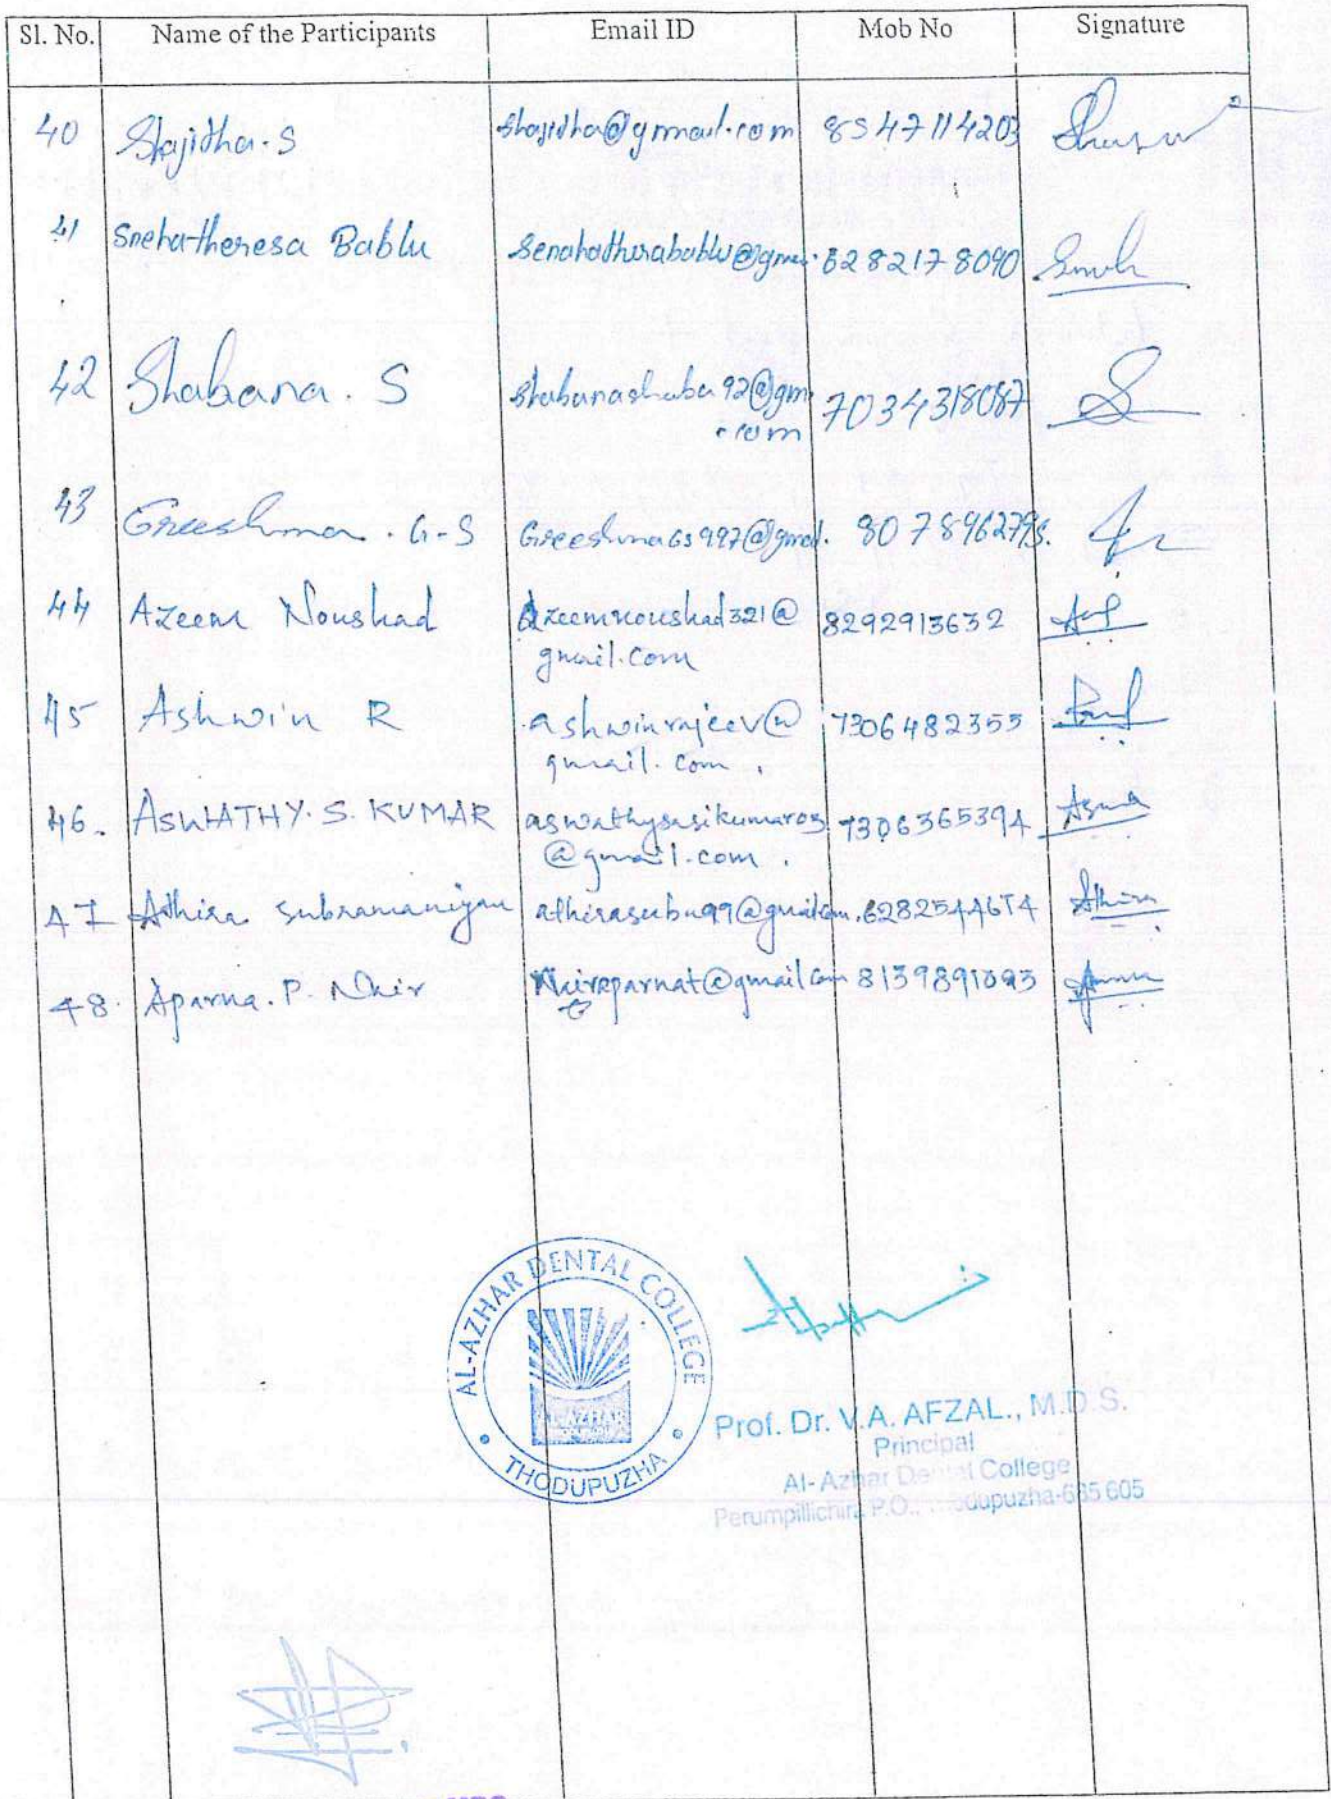 Sl. No. Name of the Participants Email ID Mob No Signature
40 Shajitha. S shajitha@gmail.com 8547114203
41 Sneha theresa Bablu senahatherabablu@gmai. 6282178090 Sneh
42 Shabana. S shabanashaba92@gm 7034318087 S
.com
43 Greeshma. G-S Greeshmags997@gmail. 8078962795.
44 Azeem Noushad Azeemnoushad321@ 8292913632
gmail.com
45 Ashwin R ashwinrajeev@ 7306482355
gmail.com.
46. ASWATHY. S. KUMAR aswathysasikumar03 7306365394
@gmail.com.
47 Athira Subramaniyan athirasubu99@gmail.com. 6282544674 Athira
48. Aparna. P. Nair Nairaparnat@gmail.com 8139891093
AL-AZHAR DENTAL COLLEGE
AL-AZHAR
THODUPUZHA
Prof. Dr. V.A. AFZAL., M.D.S.
Principal
Al-Azhar Dental College
Perumpillichira P.O., Thodupuzha-685 605